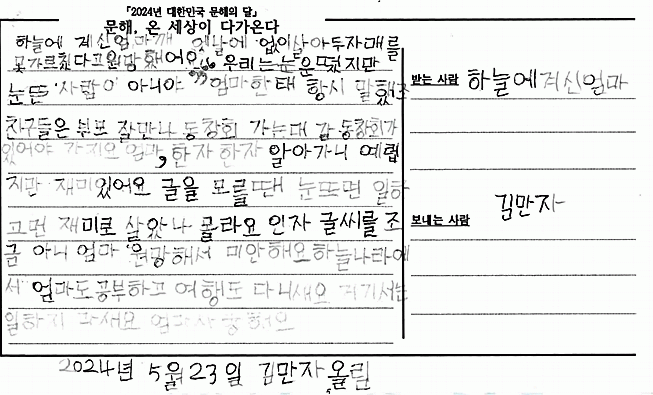 『2024년 대한민국 문해의 달』
문해, 온 세상이 다가온다
하늘에 계신엄마께 옛날에 없이살아두자매를
못가르쳤다고원망했어요 우리는눈은떴지만
눈뜬 사람이 아니야 엄마한태 항시 말했죠
친구들은 잘만나 동창회 가는데 동창회가
있어야 가지요 엄마, 한자 한자 알아가니 예렵
지만 재미있어요 글을 모를때 눈뜨면 일하
고먼 재미로 살았나 몰라요 인자 글씨를 조
금 아니 엄마 원망해서 미안해요하늘나라에
서 엄마도공부하고 여행도 다니새요 거기서는
일하지 마새요 엄마사랑해요
받는 사람 하늘에계신엄마
보내는 사람 김만자
2024년 5월23일 김만자 올림